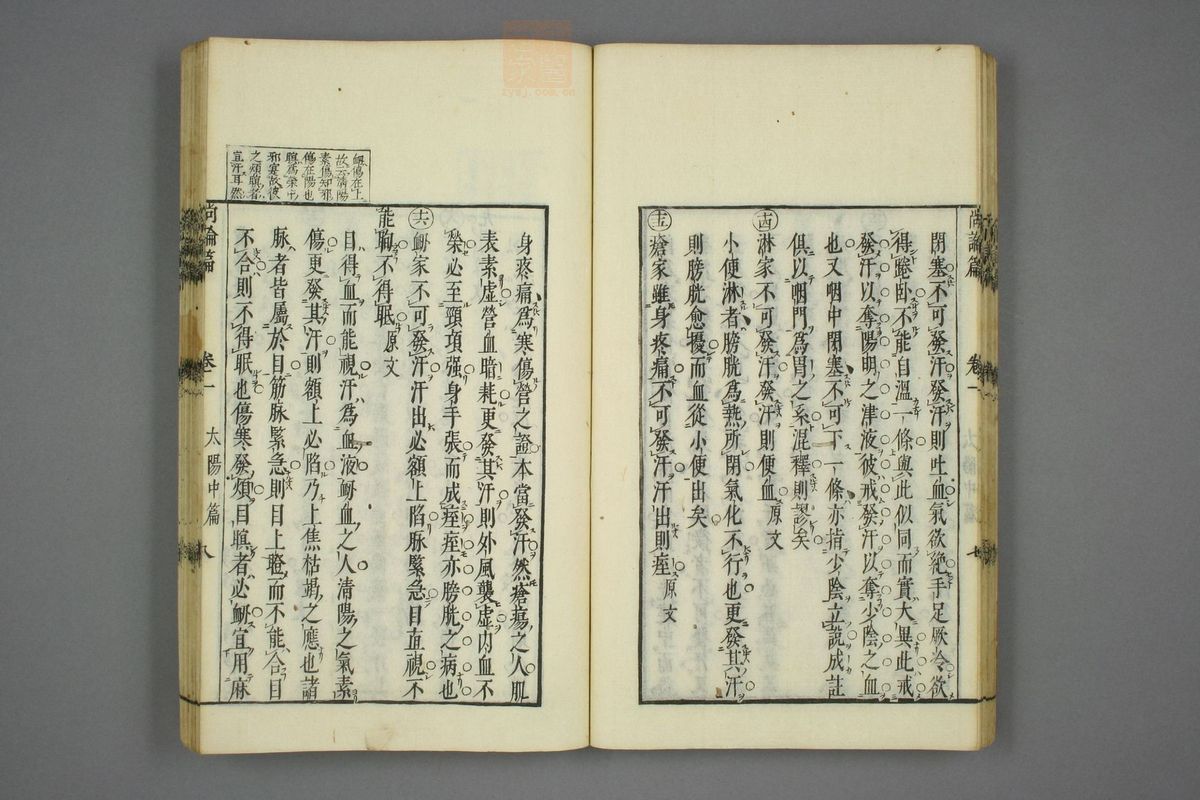 尚論篇 卷一 太陽中篇 七
閉塞不可發汗發汗則吐血氣欲絶手足厥冷欲
得踡臥不能自溫一條與此似同而實大異此戒
發汗以奪陽明之津液彼戒發汗以奪少陰之血
也又咽中閉塞不可下一條亦指少陰立說成註
俱以咽門爲胃之系混釋則謬矣
十四 淋家不可發汗發汗則便血 原文
小便淋者膀胱爲熱所閉氣化不行也更發其汗
則膀胱愈擾而血從小便出矣
十五 瘡家雖身疼痛不可發汗汗出則痓 原文
身疼痛爲寒傷營之證本當發汗然瘡瘍之人肌
表素虛營血暗耗更發其汗則外風襲虛內血不
榮必至頸項强身手張而成痓痓亦膀胱之病也
十六 衂家不可發汗汗出必額上陷脉緊急目直視不
能眴不得眠 原文
目得血而能視汗爲血液衂血之人清陽之氣素
傷更發其汗則額上必陷乃上焦枯竭之應也諸
脉者皆屬於目筋脉緊急則目上瞪而不能合目
不合則不得眠也傷寒發煩目瞑者必衂宜用麻
衂傷在上
故云清陽
素傷知邪
傷在陽也
瞑爲榮中
邪實故彼
之煩瞑者
宜汗耳然
尚論篇 卷一 太陽中篇 八
zysj.com.cn